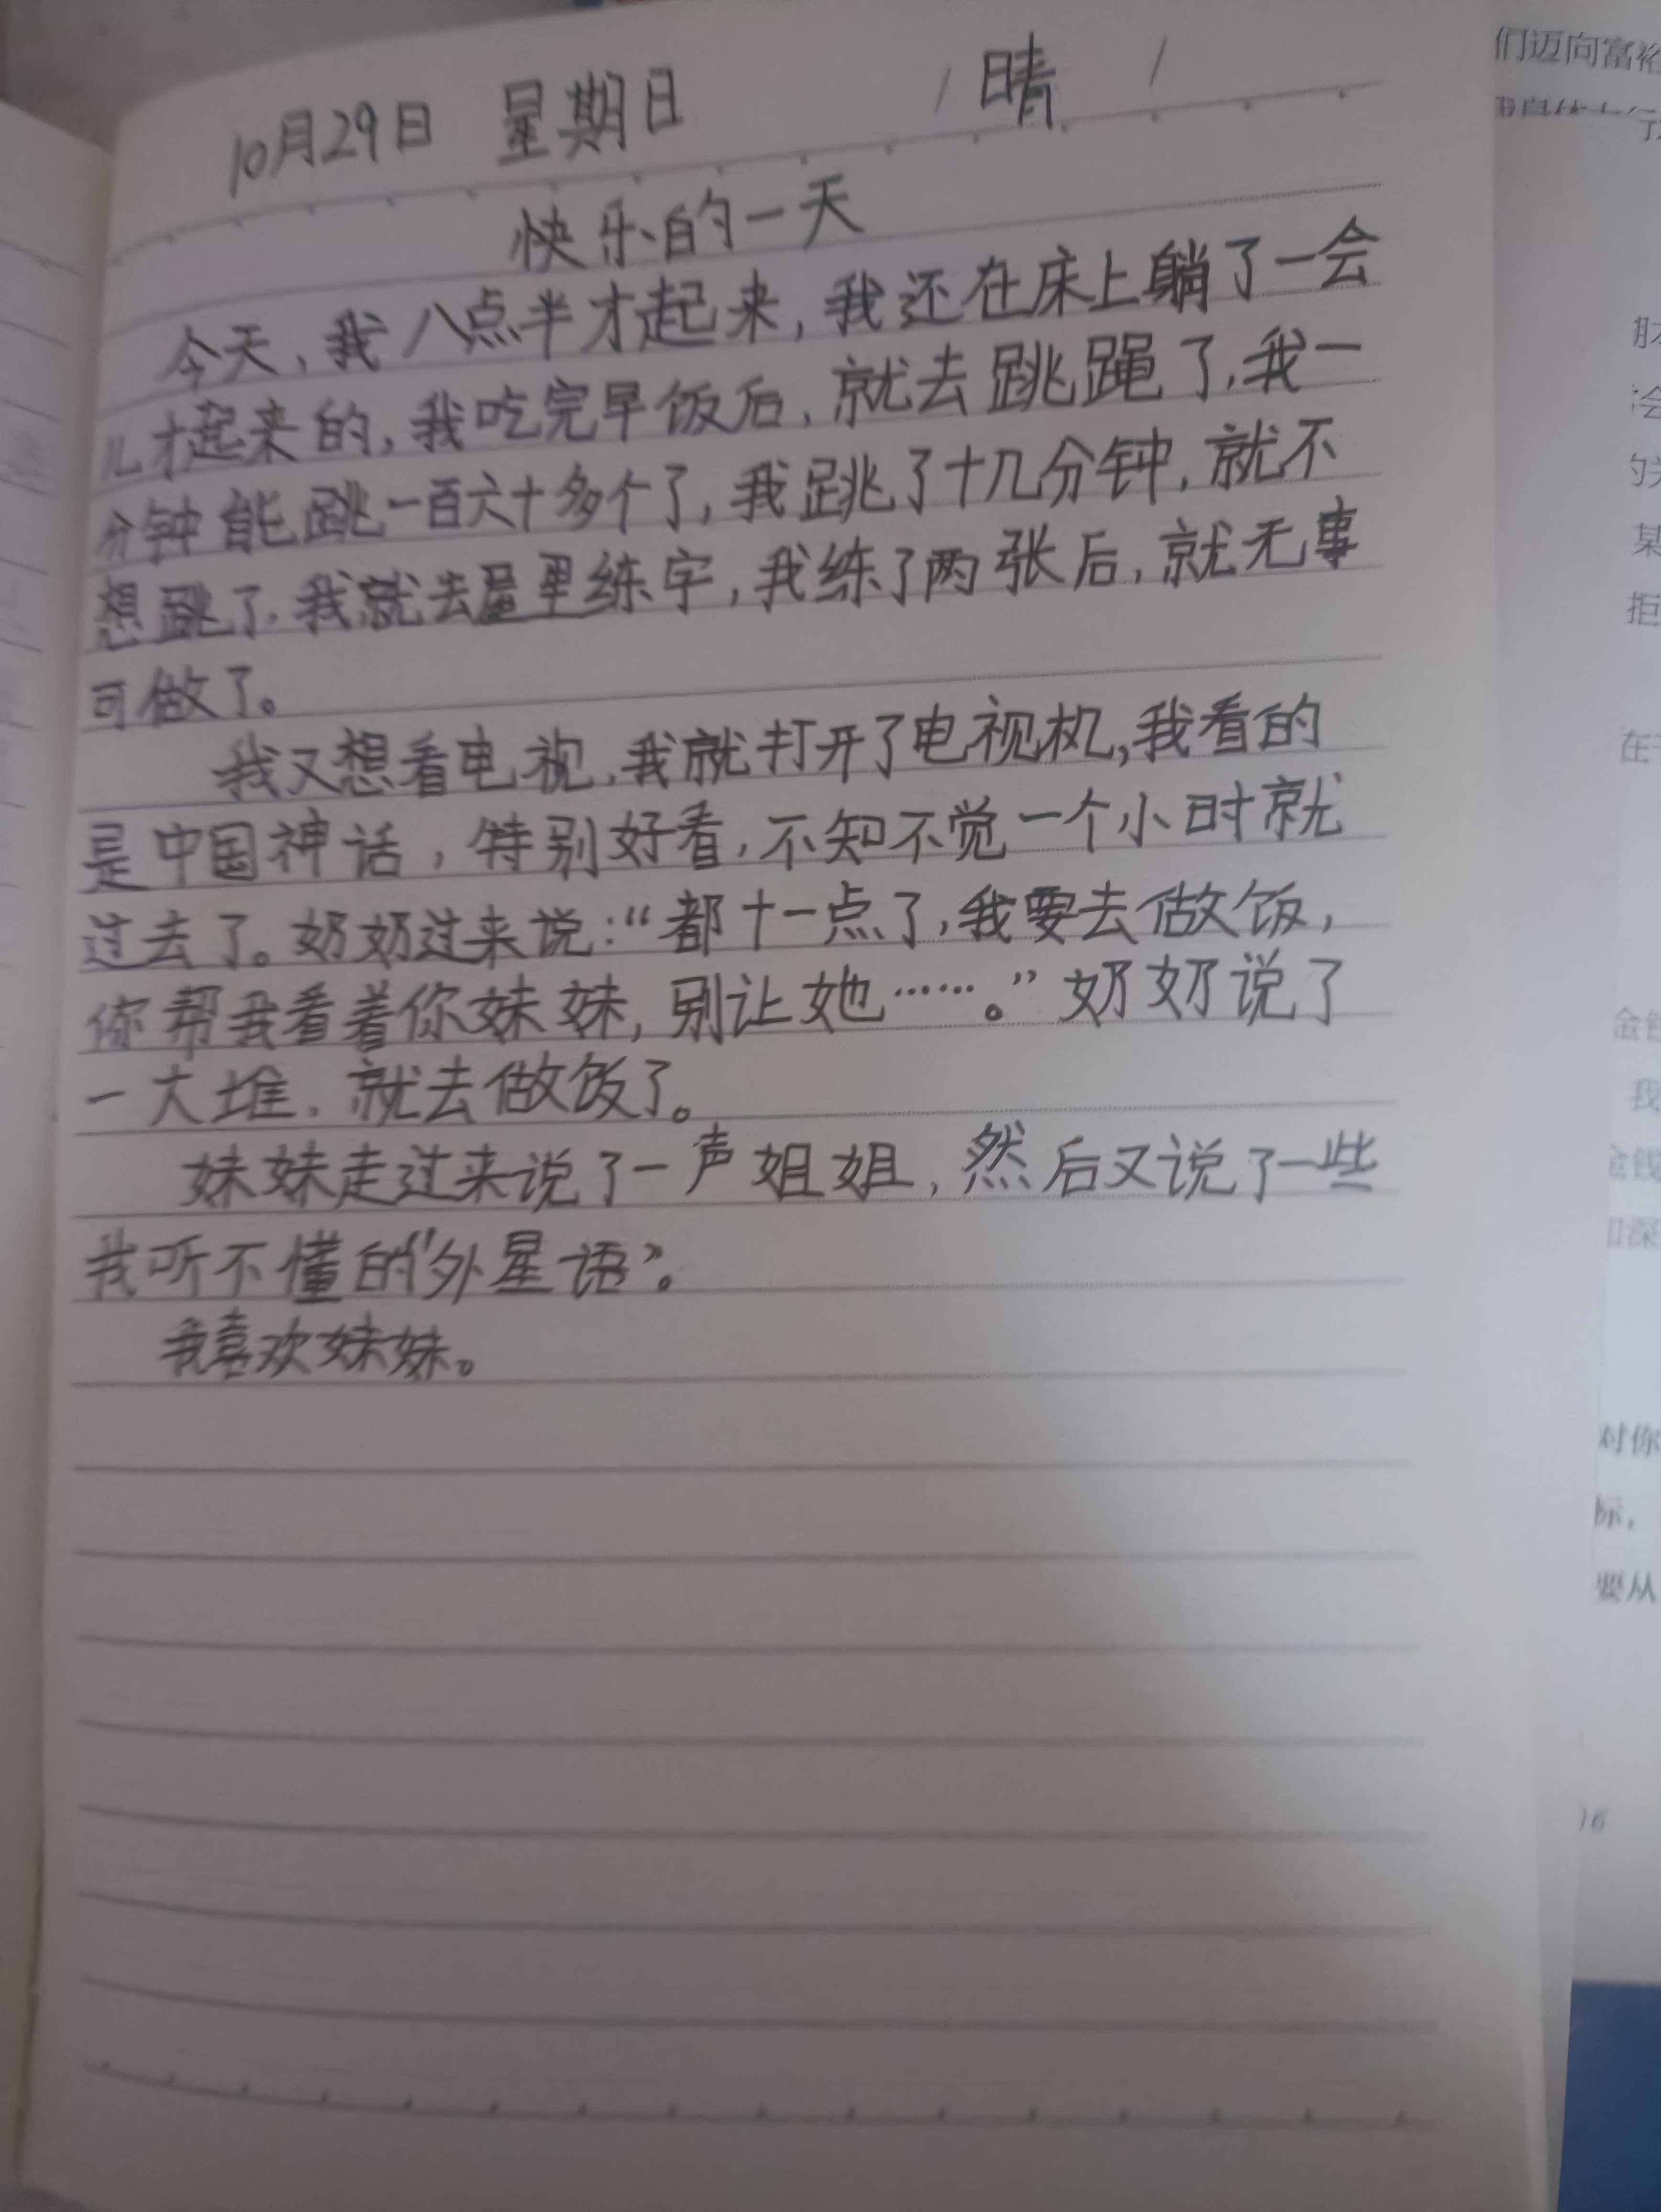 10月29日 星期日 / 晴 /
快乐的一天
今天，我八点半才起来，我还在床上躺了一会
儿才起来的，我吃完早饭后，就去跳绳了，我一
分钟能跳一百六十多个了，我跳了十几分钟，就不
想跳了，我就去屋里练字，我练了两张后，就无事
可做了。
我又想看电视，我就打开了电视机，我看的
是中国神话，特别好看，不知不觉一个小时就
过去了。奶奶过来说：“都十一点了，我要去做饭，
你帮我看着你妹妹，别让她……。”奶奶说了
一大堆，就去做饭了。
妹妹走过来说了一声姐姐，然后又说了一些
我听不懂的“外星语”。
我喜欢妹妹。
们迈向富裕
某
拒
在
金钱
我
金钱
对你
标，
要从
16